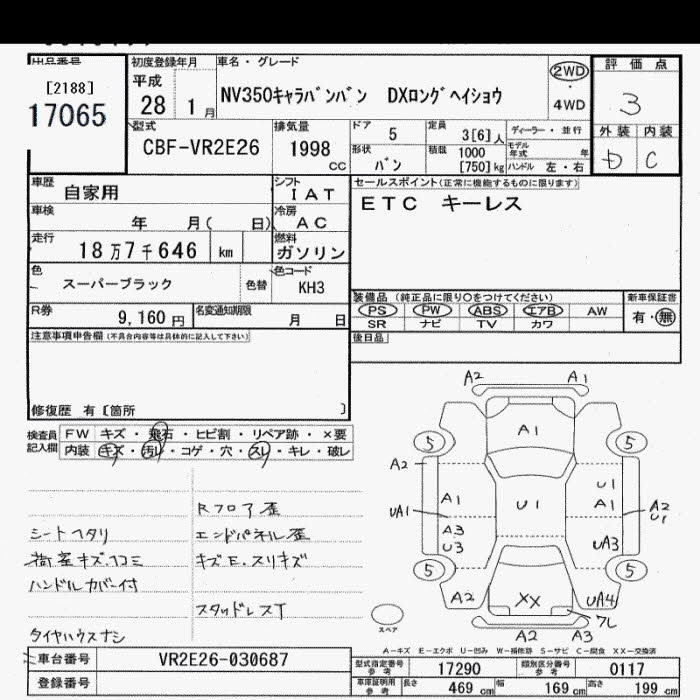 出品番号
[2188]
17065
初度登録年月
平成
28 1 月
車名・グレード
NV350キャラバンバン DXロングヘイショウ
2WD
・
4WD
評価点
3
外装 内装
D C
型式
CBF-VR2E26
排気量
1998
CC
ドア
5
定員
3[6]人
ディーラー・並行
形状
バン
積載
1000
[750]kg
モデル年式 年
ハンドル 左・右
車歴
自家用
シフト
IAT
セールスポイント(正常に機能するものに限ります)
ETC キーレス
車検
年 月( 日)
冷房
AC
走行
18万7千646 km
燃料
ガソリン
色
スーパーブラック
色替
色コード
KH3
装備品 (純正品に限り○をつけてください)
PS PW ABS エアB AW
SR ナビ TV カワ
新車保証書
有・無
R券
9,160 円
名変通知期限
月 日
後日品
注意事項申告欄(不具合内容等は具体的に記入して下さい)
修復歴 有〔箇所 〕
検査員
記入欄
FW キズ・飛石・ヒビ割・リペア跡・×要
内装 キズ・汚レ・コゲ・穴・スレ・キレ・破レ
Rフロア歪
シートヘタリ
エンドパネル歪
荷室キズ、凹ミ
キズE、スリキズ
ハンドルカバー付
スタッドレスT
タイヤハウスナシ
A2 A1
5 A1 5
A2
U1
UA1 A1 U1 A1 A2
U1
A3
U3
UA3
5 5
A2 XX UA4
フレ
A2 A3
スペア
A-キズ E-エクボ U-凹み W-補修跡 S-サビ C-腐食 XX-交換済
車台番号
VR2E26-030687
登録番号
型式指定番号
参考
17290
類別区分番号
参考
0117
車庫証明用
参考
長さ 469 cm 幅 169 cm 高さ 199 cm